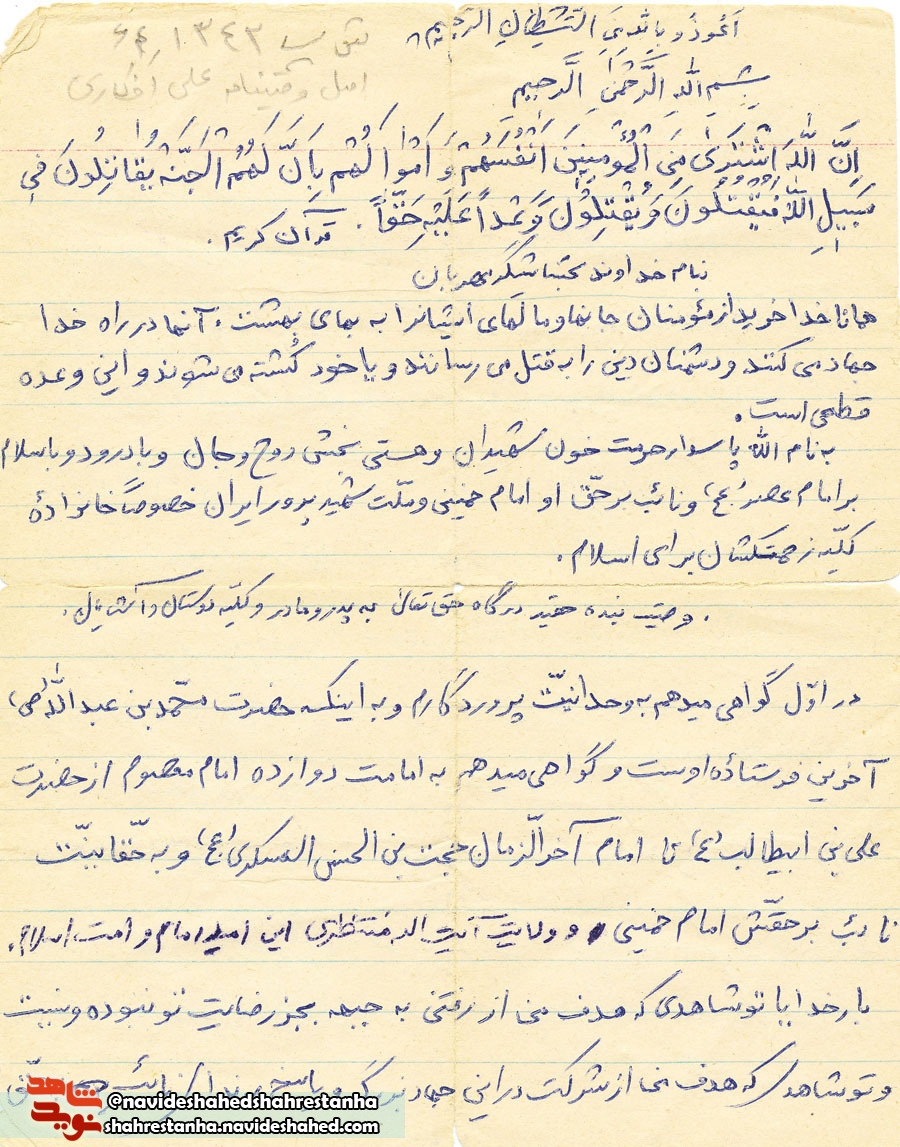 اَعُوذُ وبِاللهِ مِنَ الشَّیطانِ الرَّجیم
بِسمِ اللهِ الرَّحمنِ الرَّحیمِ
اصل وصیتنامه علی افکاری
اِنَّ اللهَ اشْتَرَی مِنَ الْمُؤمِنینَ اَنْفُسَهُم وَ اَمْوالَهُم بِاَنَّ لَهُمُ الْجَنَّة یُقاتِلُونَ فی
سَبیلِ اللهِ فَیَقْتُلُونَ وَ یُقْتَلُونَ وَعْداً عَلَیْهِ حَقّاً. قرآن کریم.
بنام خداوند بخشاشگر مهربان
همانا خدا خرید از مؤمنان جانها و مالهای ایشانرا به بهای بهشت، آنها در راه خدا
جهاد می کنند و دشمنان دین را به قتل می رسانند و یا خود کُشته می شوند و این وعده
قطعی است.
به نام اللّه پاسدار حرمت خون شهیدان و هستی بخش روح و جان و با درود و با سلام
بر امام عصر (عج) و نائب برحقّ او امام خمینی و ملّت شهید پرور ایران خصوصاً خانوادۀ
کلیّه زحمتکشان برای اسلام.
. وصیت بنده حقیر درگاه حق تعالی به پدر و مادر و کلیّه دوستان و آشنایان.
در اوّل گواهی میدهم به وحدانیّت پروردگارم و به اینکه حضرت محمّد بن عبداللّه (ص)
آخرین فرستادۀ اوست و گواهی میدهم به امامت دوازده امام معصوم از حضرت
علی بن ابیطالب (ع) تا امام آخرالّزمان حجت بن الحسن العسکری (عج) و به حقّانیّت
نائب برحقّش امام خمینی و ولایت آیت اله منتظری این امید امام و امت اسلام.
بار خدایا تو شاهدی که هدف من از رفتن به جبهه بجز رضایت تو نبوده و نیست
و تو شاهدی که هدف من از شرکت در این جهاد
شاهد
نوید
@navideshahedshahrestanha
shahrestanha.navideshahed.com